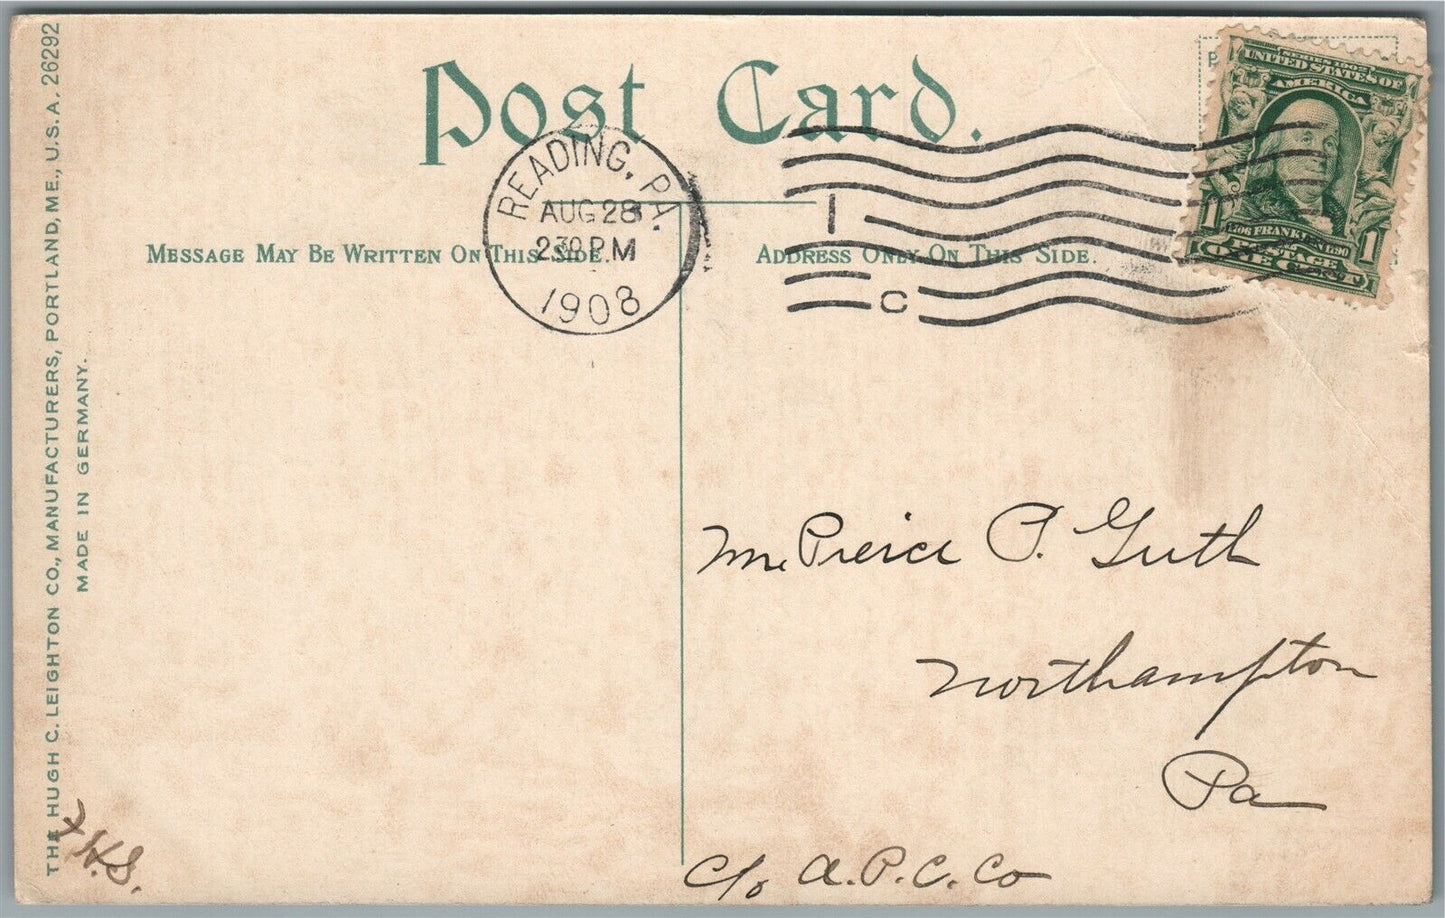 Post Card.
READING, PA.
AUG 28
2 30 P.M
1908
1
C
SERIES 1902
UNITED STATES OF
AMERICA
1706 FRANKLIN 1790
POSTAGE
1 ONE CENT 1
MESSAGE MAY BE WRITTEN ON THIS SIDE.
ADDRESS ONLY ON THIS SIDE.
THE HUGH C. LEIGHTON CO., MANUFACTURERS, PORTLAND, ME., U.S.A. 26292
MADE IN GERMANY.
Mr. Pierce P. Guth
Northampton
Pa
c/o A.P.C. Co